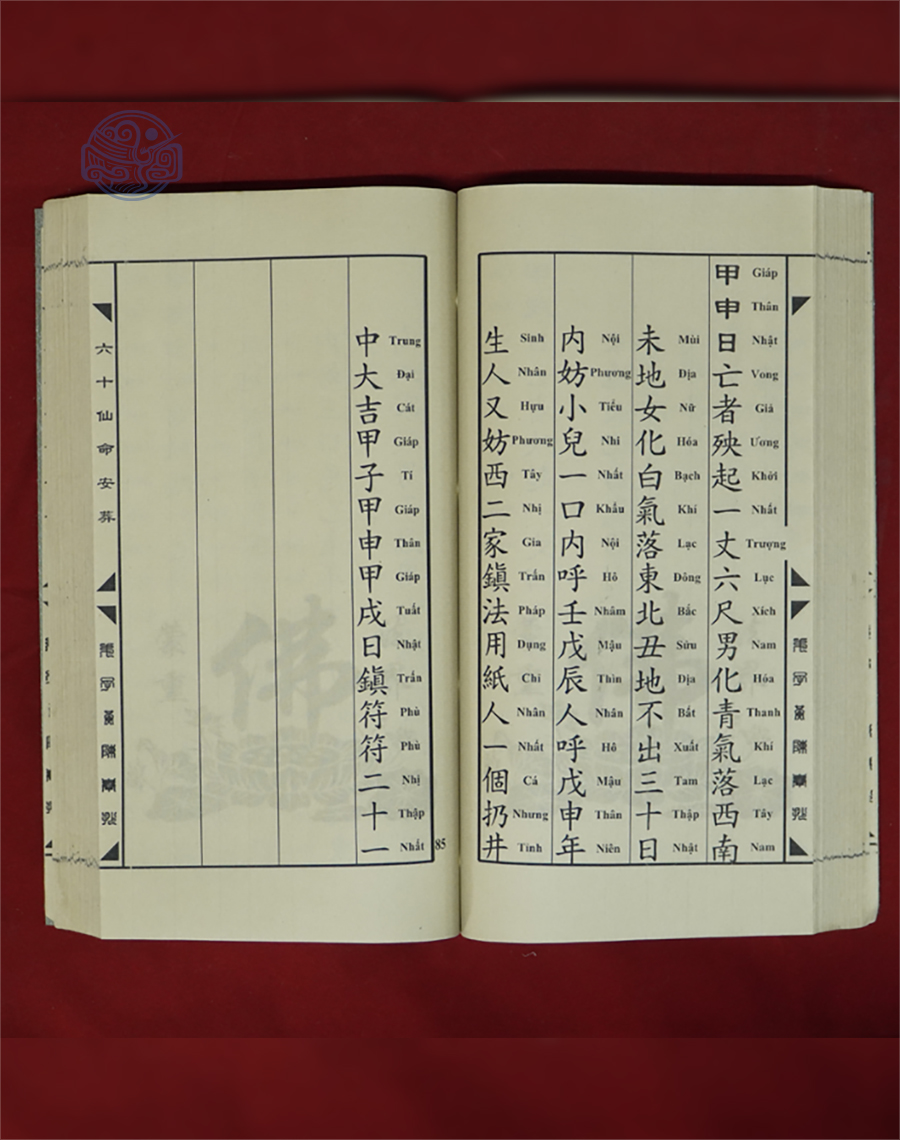 甲申日亡者殃起一丈六尺男化青氣落西南
Giáp Thân Nhật Vong Giả Ương Khởi Nhất Trượng Lục Xích Nam Hóa Thanh Khí Lạc Tây Nam
未地女化白氣落東北丑地不出三十日
Mùi Địa Nữ Hóa Bạch Khí Lạc Đông Bắc Sửu Địa Bất Xuất Tam Thập Nhật
内妨小兒一口内呼壬戊辰人呼戊申年
Nội Phương Tiểu Nhi Nhất Khẩu Nội Hô Nhâm Mậu Thìn Nhân Hô Mậu Thân Niên
生人又妨西二家鎮法用紙人一個扔井
Sinh Nhân Hựu Phương Tây Nhị Gia Trấn Pháp Dụng Chỉ Nhân Nhất Cá Nhưng Tỉnh
中大吉甲子甲申甲戌日鎮符符二十一
Trung Đại Cát Giáp Tí Giáp Thân Giáp Tuất Nhật Trấn Phù Phù Nhị Thập Nhất
85
六十仙命安葬